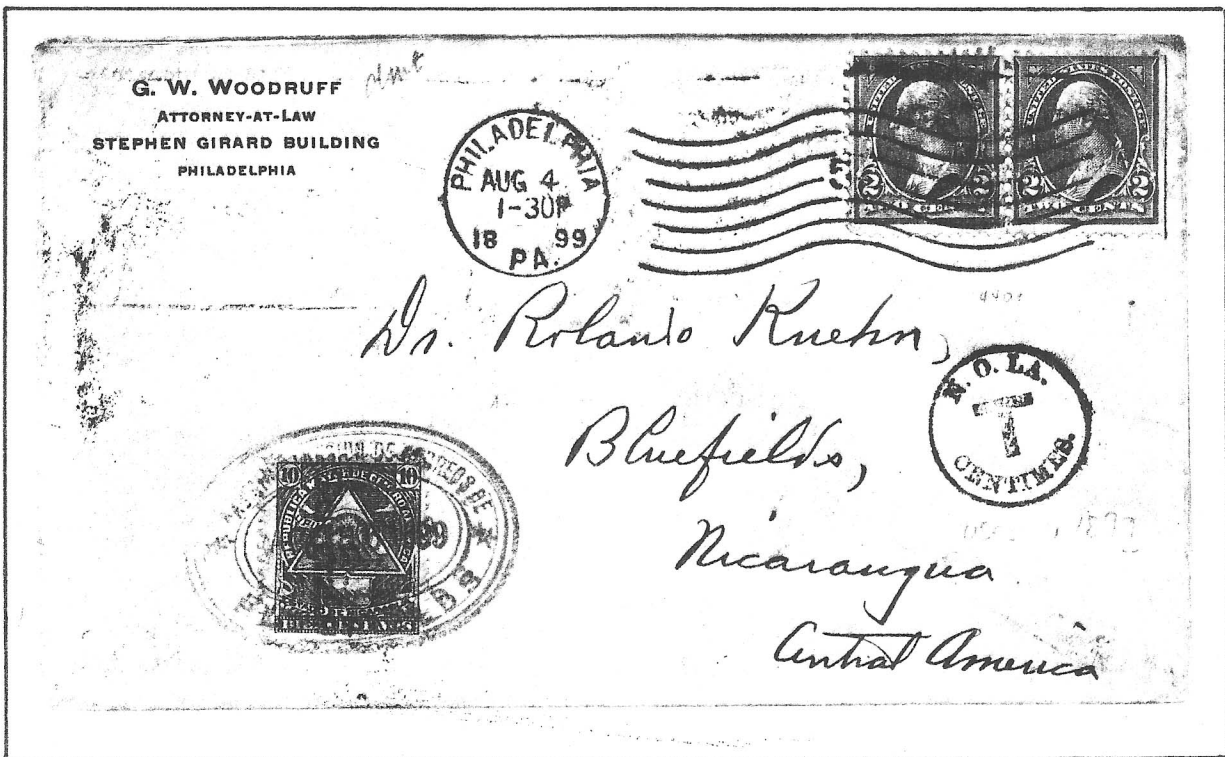 G. W. WOODRUFF
ATTORNEY-AT-LAW
STEPHEN GIRARD BUILDING
PHILADELPHIA
PHILADELPHIA
AUG 4
1-30P
18 99
PA.
2 2
2 2
Dr. Rolando Kuehn,
N. O. LA.
T
CENTIMES.
Bluefields,
Nicarangua
Central America
10 10